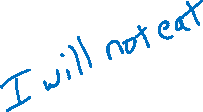 I will not eat